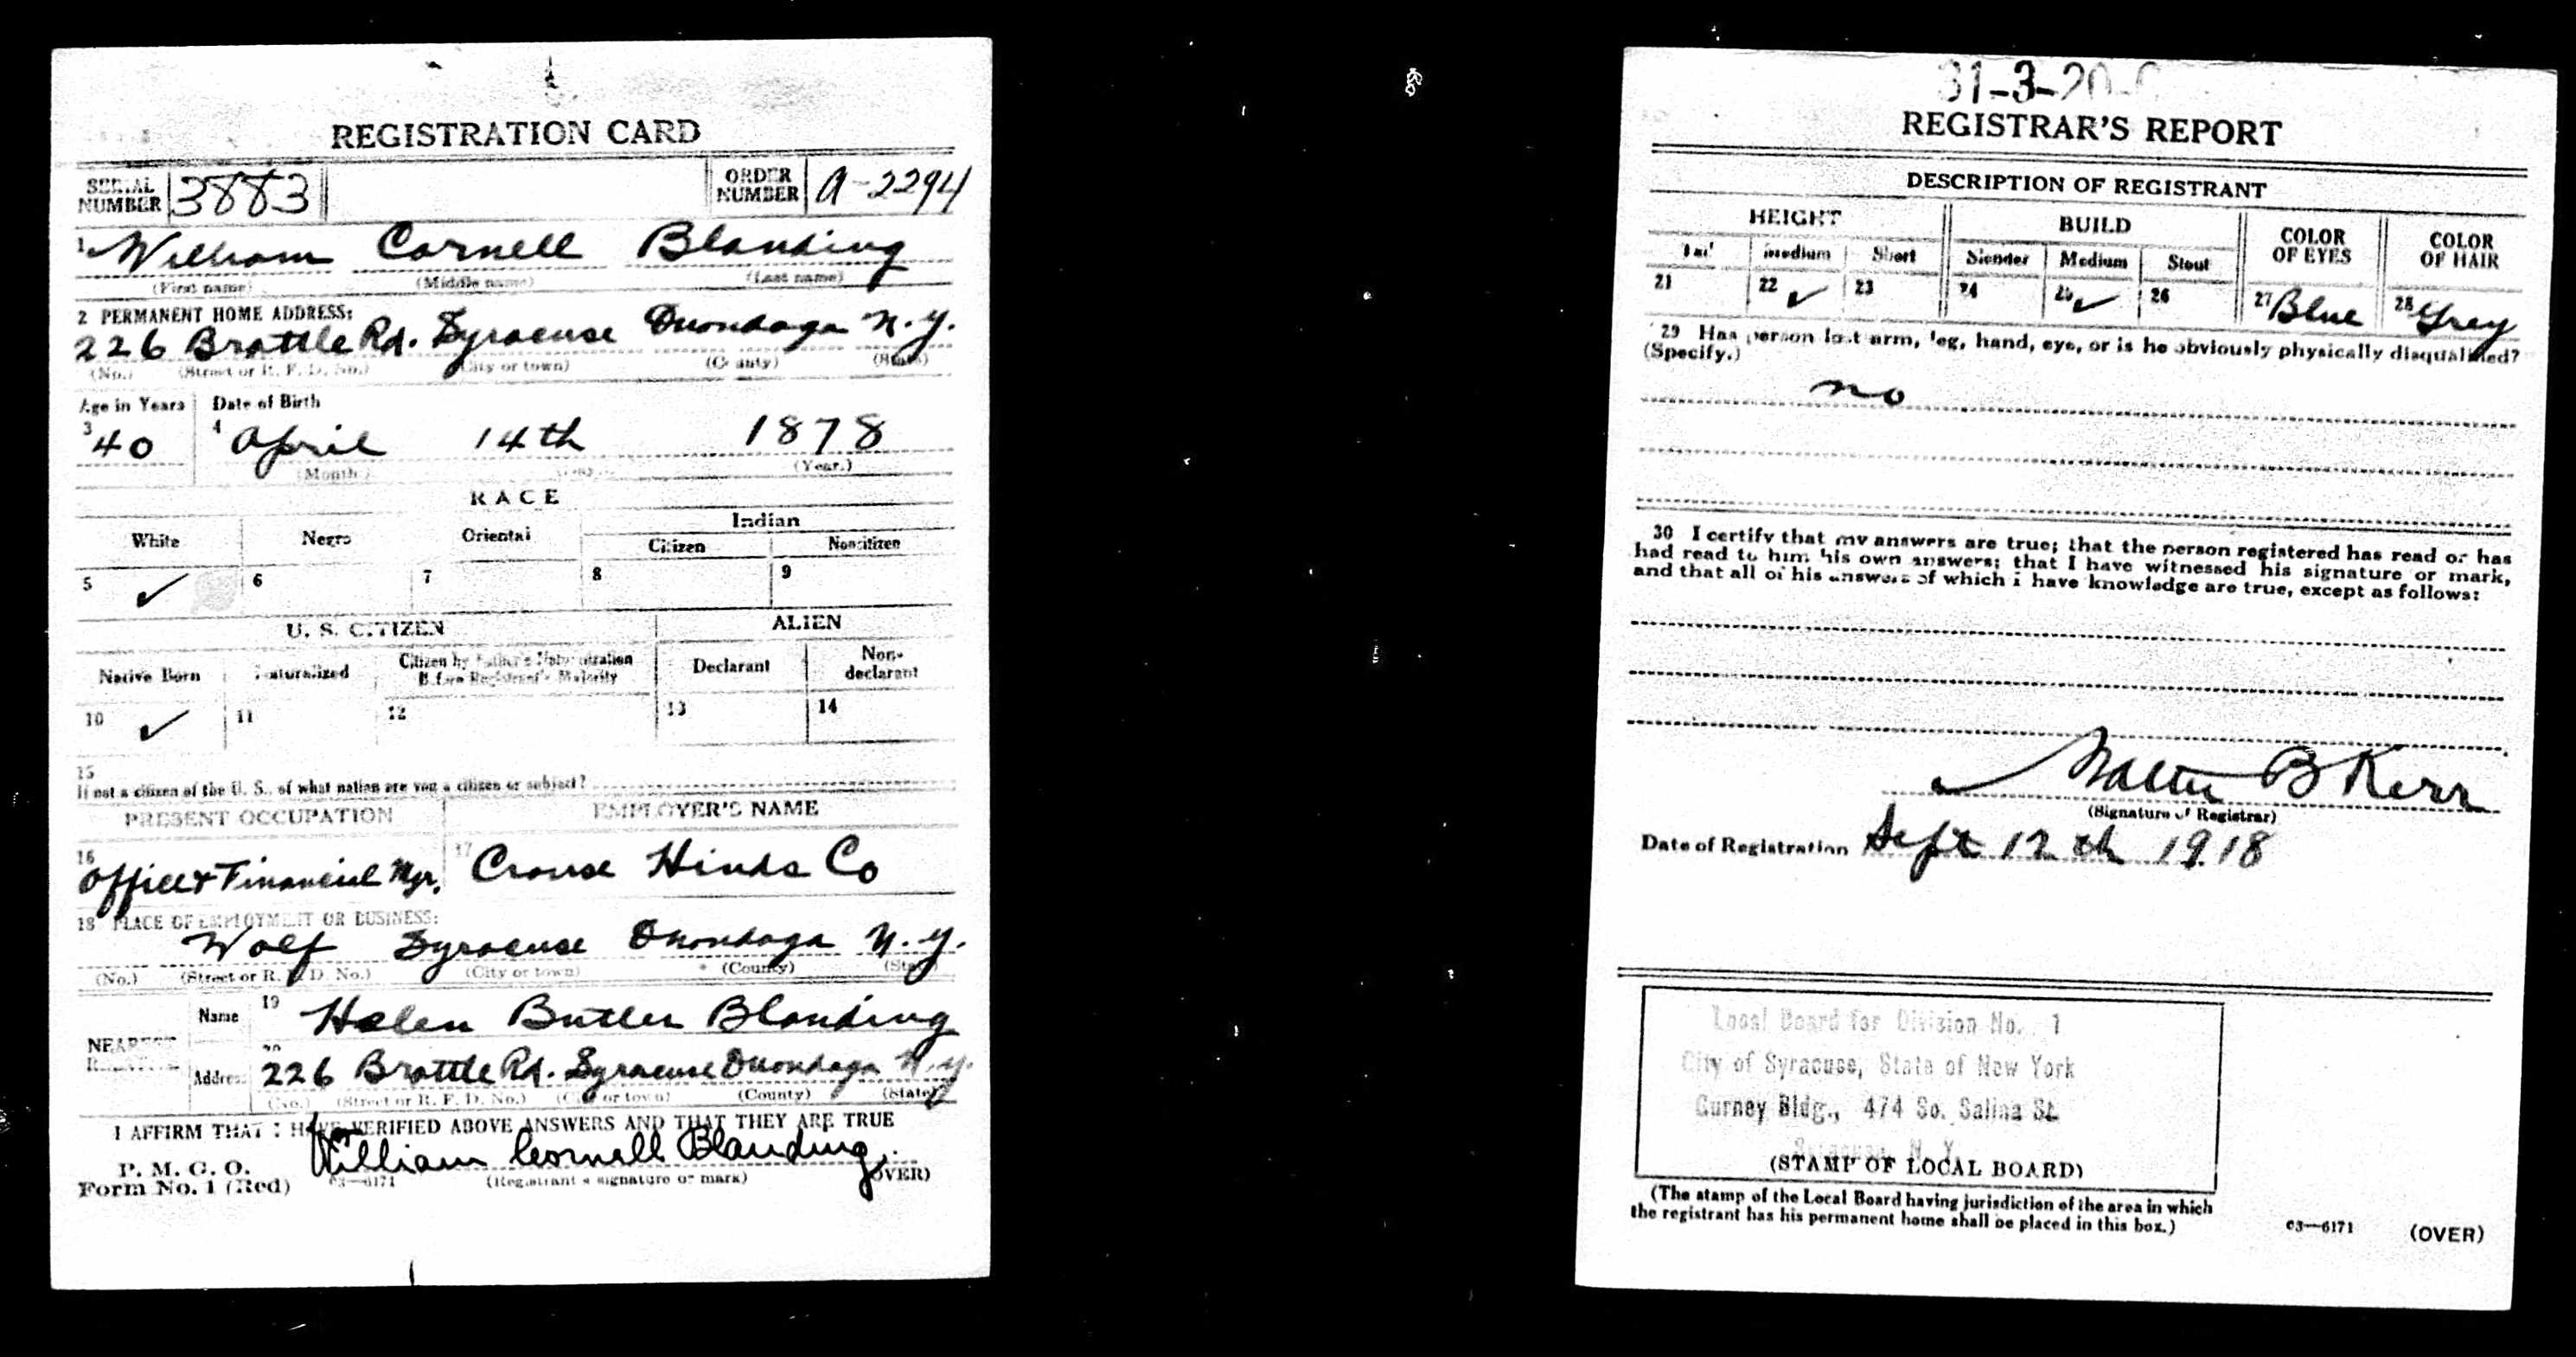 REGISTRATION CARD
SERIAL NUMBER 3883 ORDER NUMBER A-2294
1 William Cornell Blanding
(First name) (Middle name) (Last name)
2 PERMANENT HOME ADDRESS:
226 Brattle Rd. Syracuse Onondaga N.Y.
(No.) (Street or R. F. D. No.) (City or town) (County) (State)
Age in Years Date of Birth
3 40 4 April 14th 1878
(Month.) (Year.)
RACE
White Negro Oriental Indian
Citizen Noncitizen
5 ✓ 6 7 8 9
U. S. CITIZEN ALIEN
Native Born Naturalized Citizen by Father's Naturalization Before Registrant's Majority Declarant Non-declarant
10 ✓ 11 12 13 14
15
If not a citizen of the U. S., of what nation are you a citizen or subject?
PRESENT OCCUPATION EMPLOYER'S NAME
16 Office & Financial Mgr. 17 Crouse Hinds Co
18 PLACE OF EMPLOYMENT OR BUSINESS:
Wolf Syracuse Onondaga N.Y.
(No.) (Street or R. F. D. No.) (City or town) (County) (State)
NEAREST RELATIVE Name 19 Helen Butler Blanding
Address 20 226 Brattle Rd. Syracuse Onondaga N.Y.
(No.) (Street or R. F. D. No.) (City or town) (County) (State)
I AFFIRM THAT I HAVE VERIFIED ABOVE ANSWERS AND THAT THEY ARE TRUE
P. M. G. O.
Form No. 1 (Red) 03—6171 William Cornell Blanding (OVER)
(Registrant's signature or mark)
31-3-20
REGISTRAR'S REPORT
DESCRIPTION OF REGISTRANT
HEIGHT BUILD COLOR OF EYES COLOR OF HAIR
Tall Medium Short Slender Medium Stout
21 22 ✓ 23 24 25 ✓ 26 27 Blue 28 Grey
29 Has person lost arm, leg, hand, eye, or is he obviously physically disqualified?
(Specify.)
no
30 I certify that my answers are true; that the person registered has read or has
had read to him his own answers; that I have witnessed his signature or mark,
and that all of his answers of which I have knowledge are true, except as follows:
Walter B Kerr
(Signature of Registrar)
Date of Registration Sept 12th 1918
Local Board for Division No. 1
City of Syracuse, State of New York
Gurney Bldg., 474 So. Salina St.
Syracuse, N. Y.
(STAMP OF LOCAL BOARD)
(The stamp of the Local Board having jurisdiction of the area in which
the registrant has his permanent home shall be placed in this box.)
03—6171 (OVER)